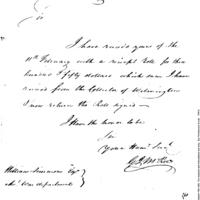 Sir
I have received yours of the
11th February with a receipt Roll for two
hundred & fifty dollars which sum I have
received from the Collector of Wilmington
I now return the Roll signed —
I have the honor to be
Sir
your
William Simmons Esqr
War department